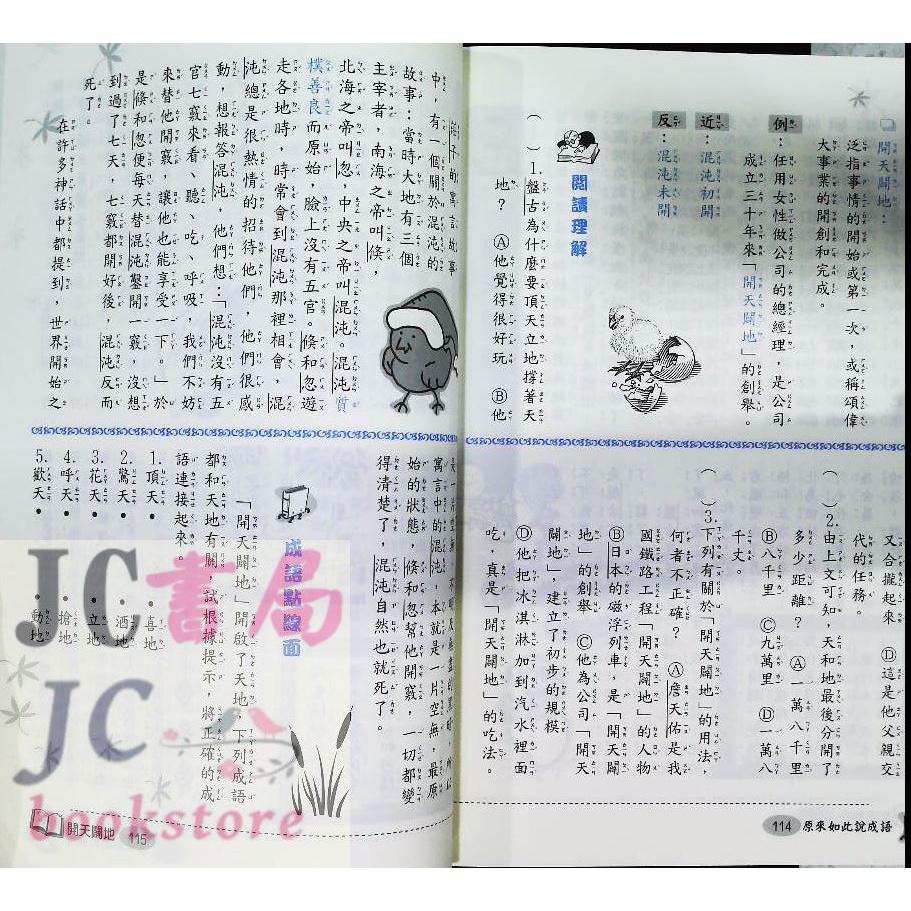 開天闢地：
泛指事情的開始或第一次，或稱頌偉
大事業的開創和完成。
例：任用女性做公司的總經理，是公司
成立三十年來「開天闢地」的創舉。
近：混沌初開
反：混沌未開
閱讀理解
（ ）1.盤古為什麼要頂天立地撐著天
地？ Ⓐ他覺得很好玩 Ⓑ他
又合攏起來 Ⓓ這是他父親交
代的任務。
（ ）2.由上文可知，天和地最後分開了
多少距離？ Ⓐ一萬八千里
Ⓑ八千里 Ⓒ九萬里 Ⓓ一萬八
千丈。
（ ）3.下列有關於「開天闢地」的用法，
何者不正確？ Ⓐ詹天佑是我
國鐵路工程「開天闢地」的人物
Ⓑ日本的磁浮列車，是「開天闢
地」的創舉 Ⓒ他為公司「開天
闢地」，建立了初步的規模
Ⓓ他把冰淇淋加到汽水裡面
吃，真是「開天闢地」的吃法。
114 原來如此說成語
莊子的寓言故事
中，有一個關於混沌的
故事：當時大地有三個
主宰者，南海之帝叫倏，
北海之帝叫忽，中央之帝叫混沌。混沌質
樸善良而原始，臉上沒有五官。倏和忽遊
走各地時，時常會到混沌那裡相會，混
沌總是很熱情的招待他們，他們很感
動，想報答混沌，他們想：「混沌沒有五
官七竅來看、聽、吃、呼吸，我們不妨
來替他開竅，讓他也能享受一下。」於
是倏和忽便每天替混沌鑿開一竅，沒想
到過了七天，七竅都開好後，混沌反而
死了。
在許多神話中都提到，世界開始之
寓言中的混沌，本就是一片空無，最原
始的狀態，倏和忽幫他開竅，一切都變
得清楚了，混沌自然也就死了。
成語點線面
「開天闢地」開啟了天地，下列成語
都和天地有關，試根據提示，將正確的成
語連接起來。
1.頂天• •喜地
2.驚天• •酒地
3.花天• •立地
4.呼天• •搶地
5.歡天• •動地
開天闢地 115
JC書局
JC
bookstore